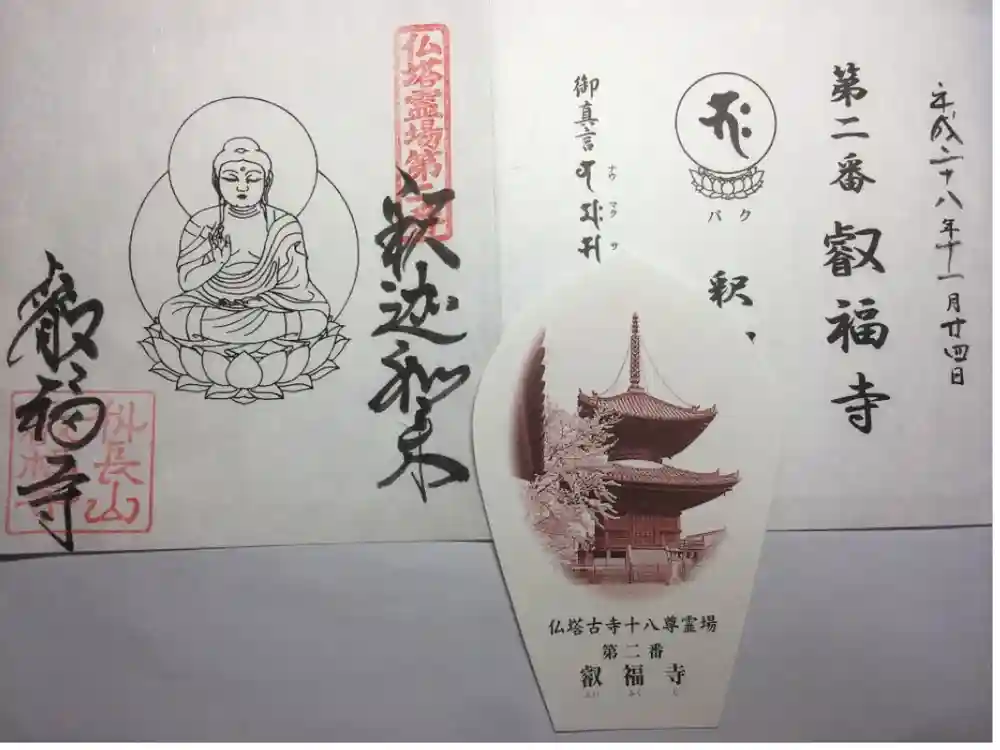 平成二十八年十一月廿四日
第二番 叡福寺
バク
釈
御真言
ナウ マク サ
仏塔霊場第二番
釈迦如来
叡福寺
磯長山
仏塔古寺十八尊霊場
第二番
叡福寺
えい ふく じ